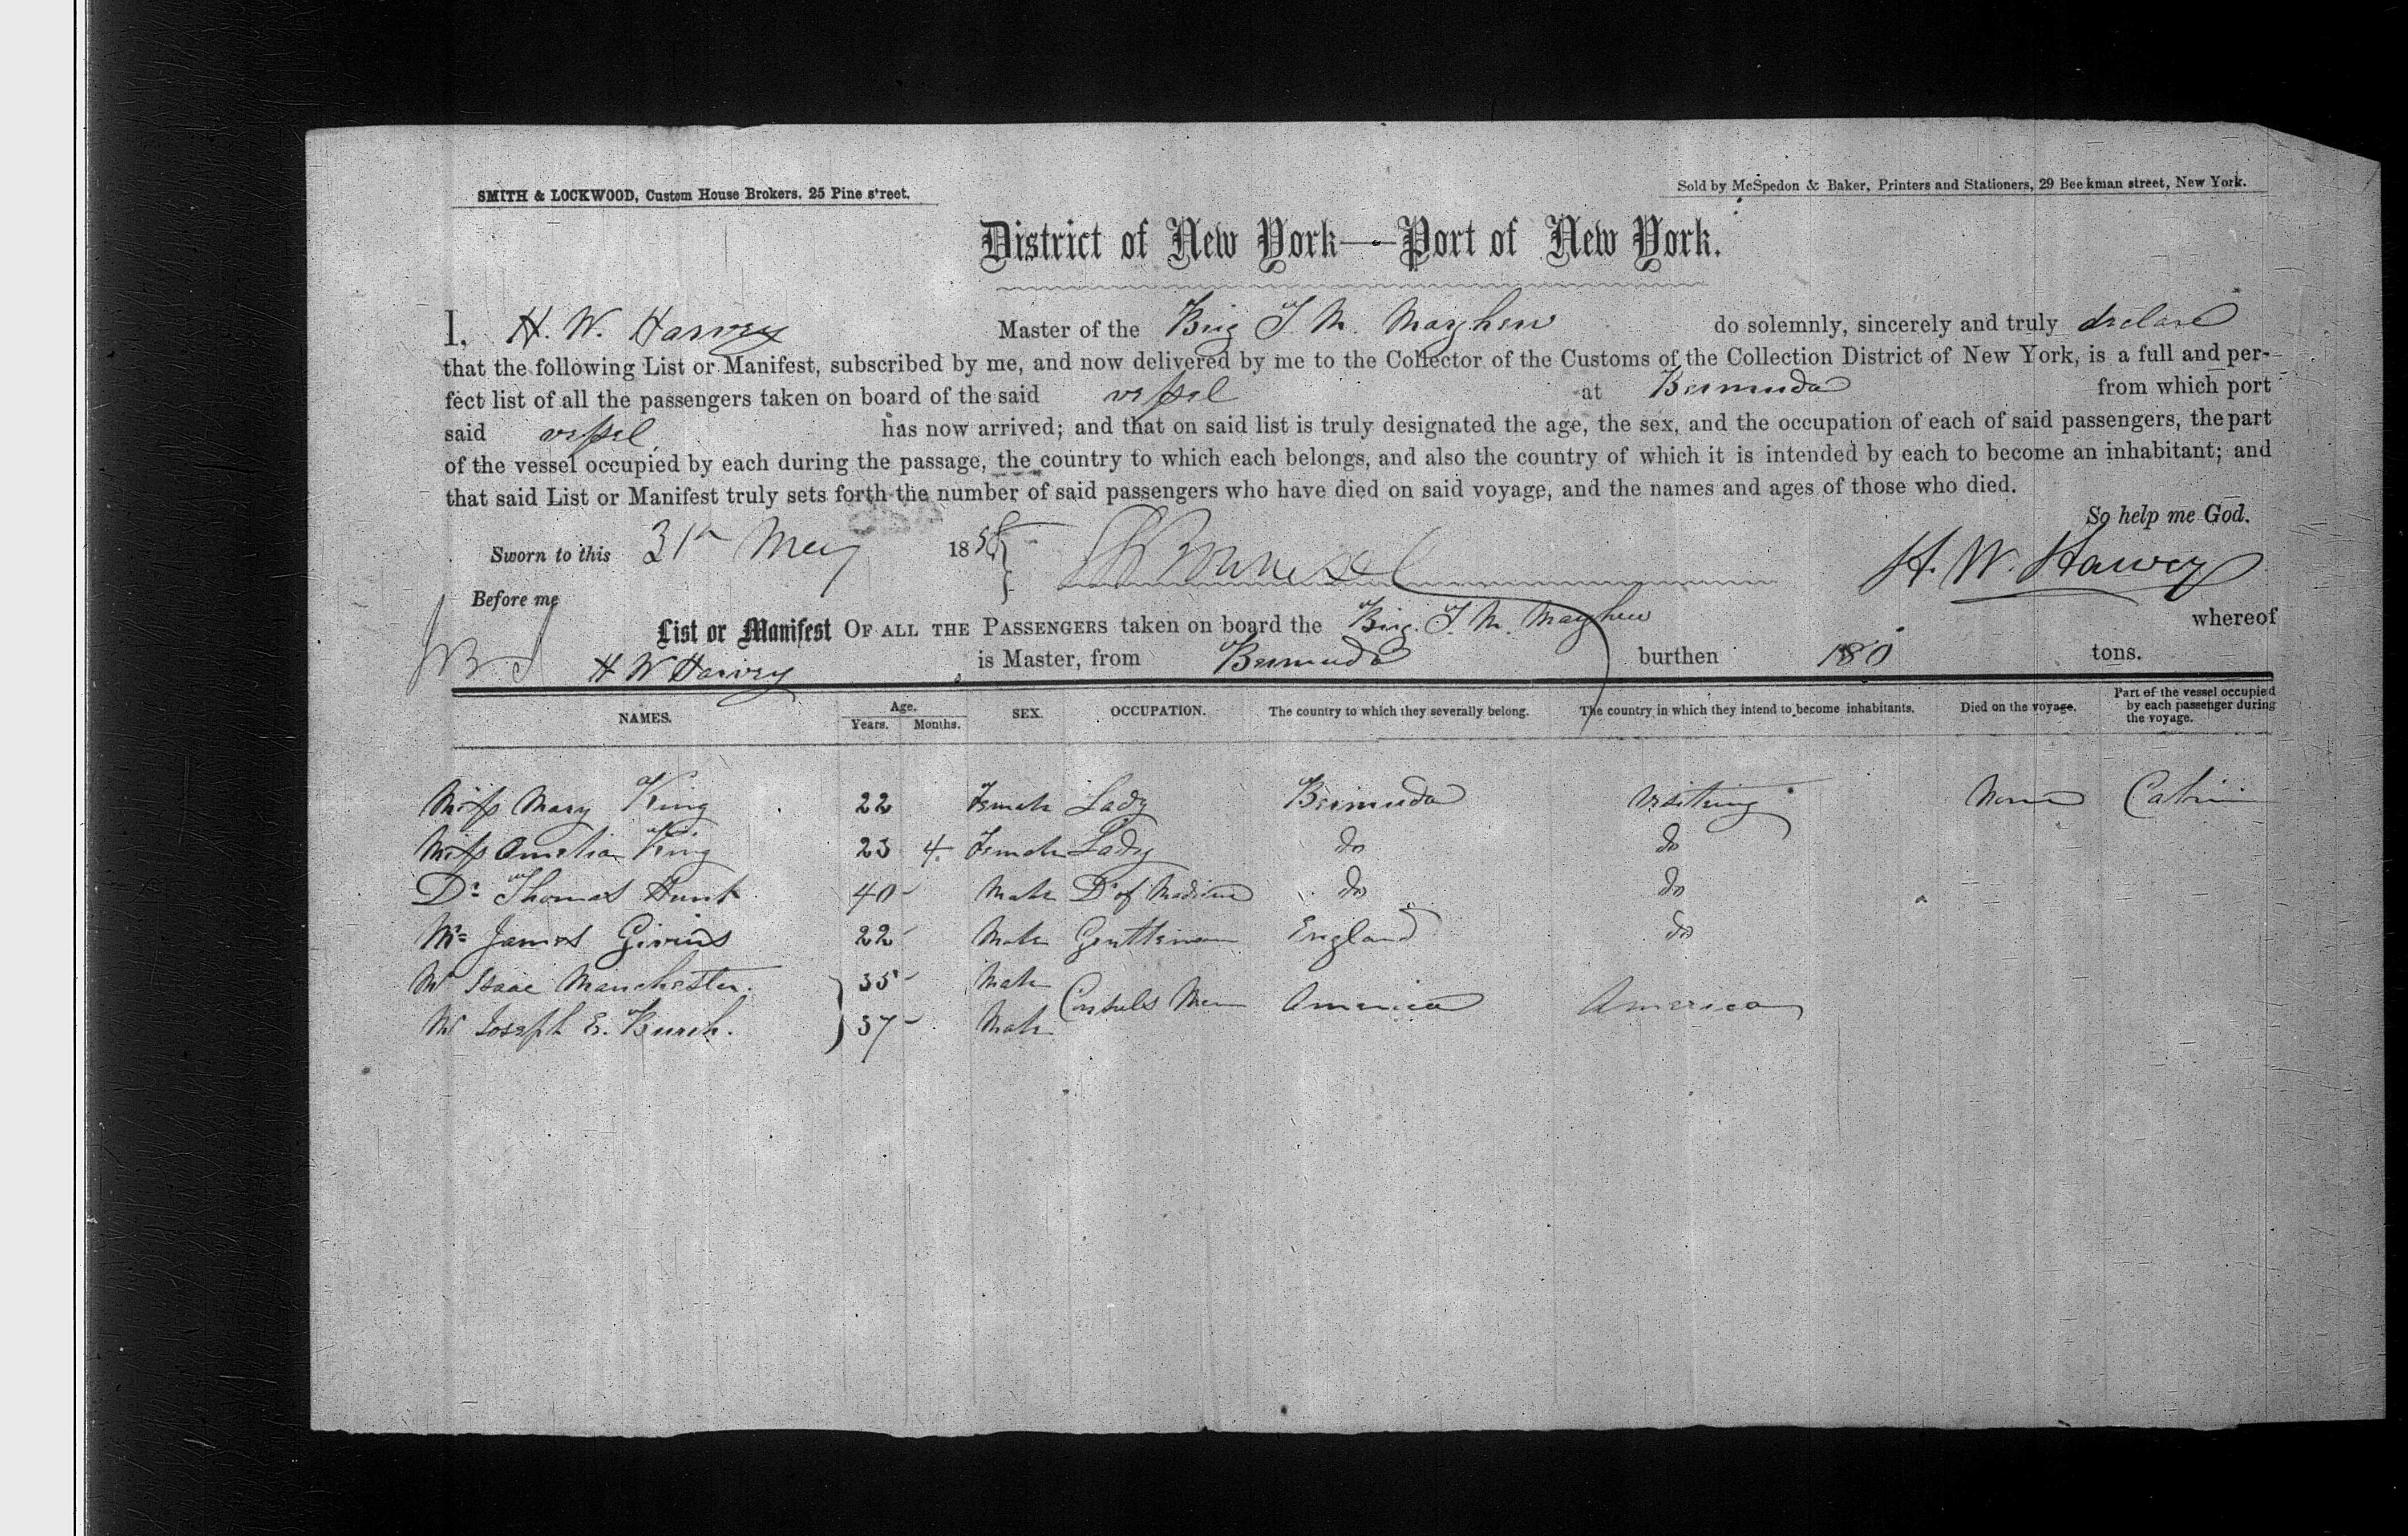 SMITH & LOCKWOOD, Custom House Brokers, 25 Pine street.
Sold by McSpedon & Baker, Printers and Stationers, 29 Beekman street, New York.
District of New York—Port of New York.
I, H. W. Harvey Master of the Brig T. M. Mayhew do solemnly, sincerely and truly declare
that the following List or Manifest, subscribed by me, and now delivered by me to the Collector of the Customs of the Collection District of New York, is a full and per-
fect list of all the passengers taken on board of the said vessel at Bermuda from which port
said vessel has now arrived; and that on said list is truly designated the age, the sex, and the occupation of each of said passengers, the part
of the vessel occupied by each during the passage, the country to which each belongs, and also the country of which it is intended by each to become an inhabitant; and
that said List or Manifest truly sets forth the number of said passengers who have died on said voyage, and the names and ages of those who died.
So help me God.
Sworn to this 31st May 185
H. W. Harvey
Before me
List or Manifest OF ALL THE PASSENGERS taken on board the Brig. T. M. Mayhew whereof
H W Harvey is Master, from Bermuda burthen 180 tons.
NAMES. Age. Years. Months. SEX. OCCUPATION. The country to which they severally belong. The country in which they intend to become inhabitants. Died on the voyage. Part of the vessel occupied by each passenger during the voyage.
Miss Mary King 22 Female Lady Bermuda Visiting None Cabin
Miss Amelia King 23 4 Female Lady do do
Dr Thomas Hunt 40 Male Dr of Medicine do do
Mr James Givins 22 Male Gentleman England do
Mr Isaac Manchester. 35 Male
Consuls Men America America
Mr Joseph E. Burch. 37 Male